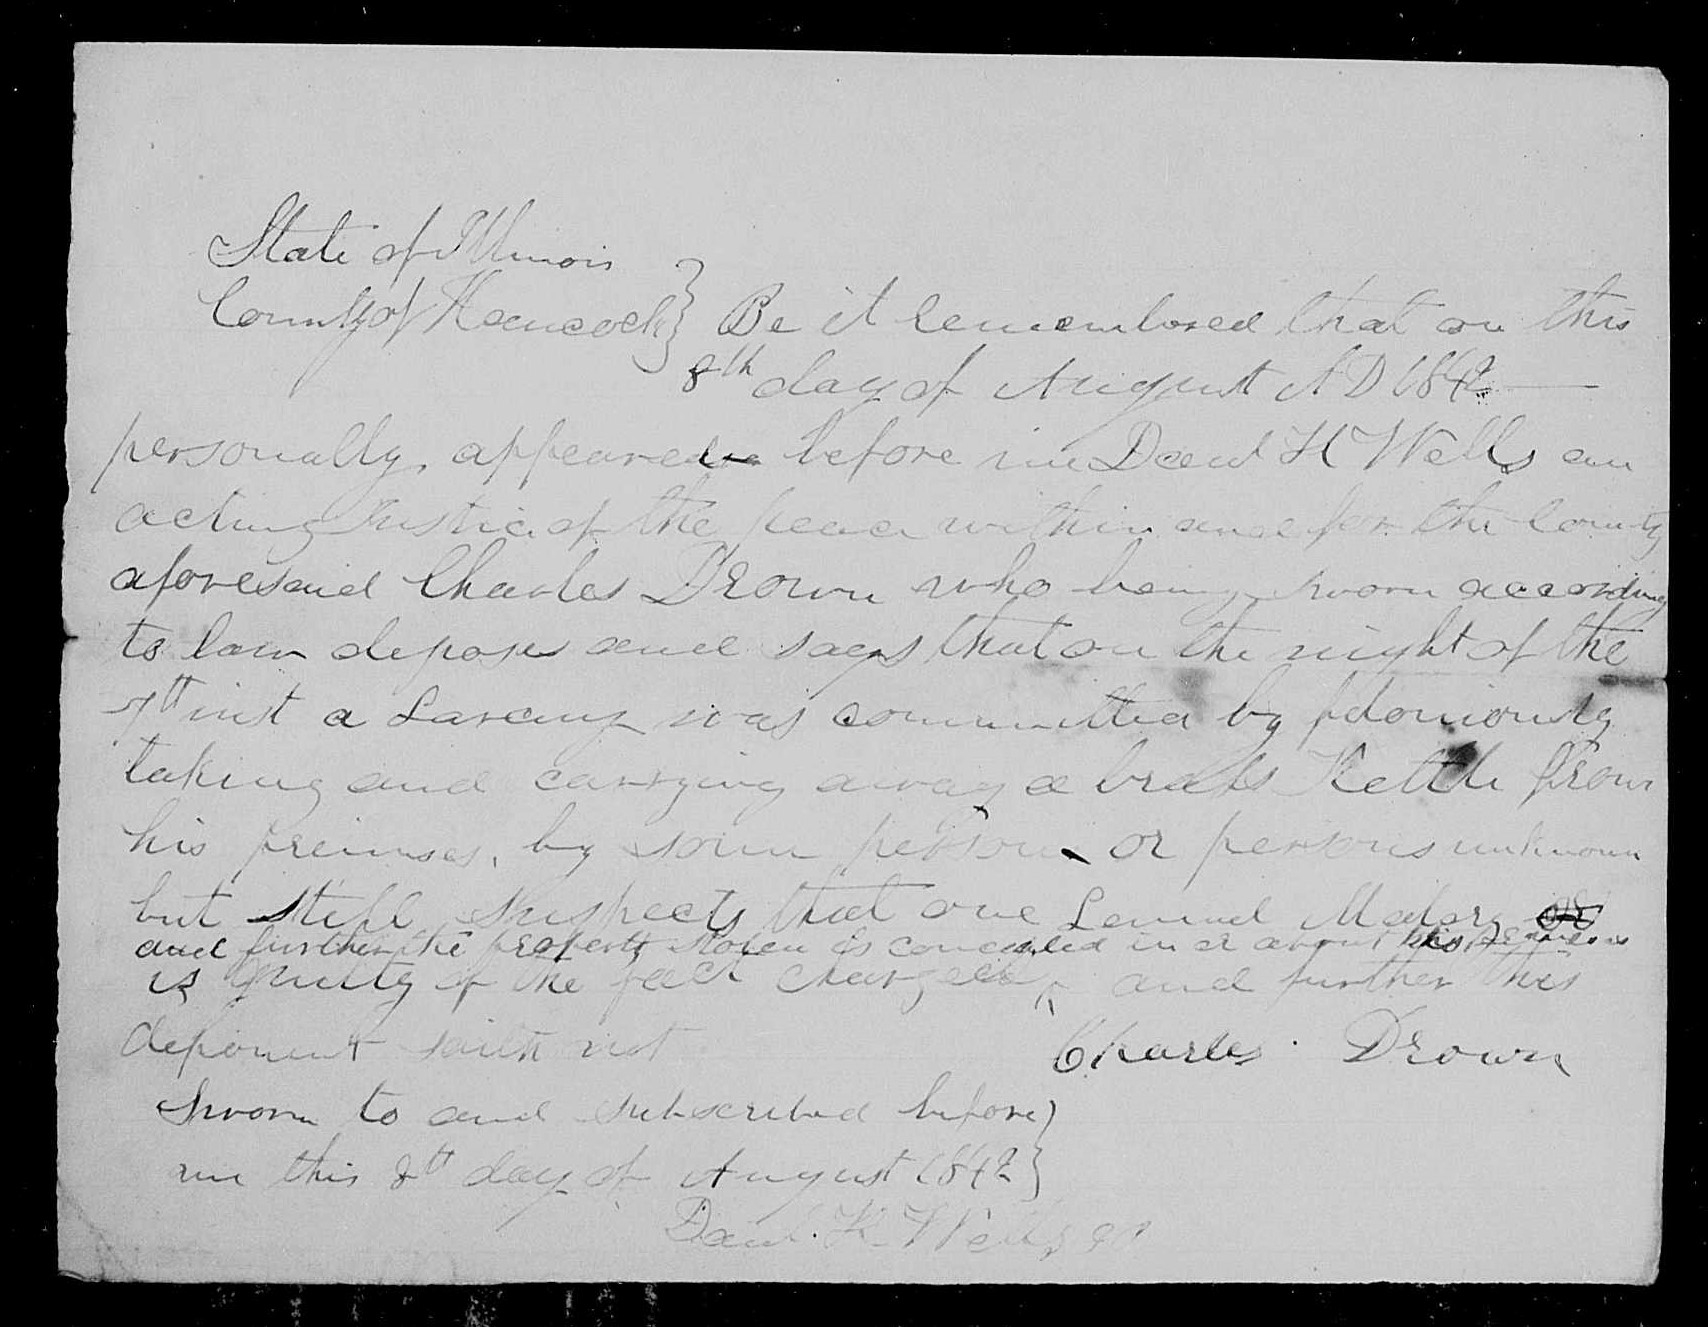 State of Illinois
County of Hancock } Be it remembered that on this
8th day of August A D 1842
personally appeared before me Danl H Wells an
acting Justice of the peace within and for the County
aforesaid Charles Drown who being sworn according
to law deposes and says that on the night of the
7th inst a Larceny was committed by feloniously
taking and carrying away a brass Kettle from
his premises, by some person or persons unknown
but still suspects that one Lemuel Malory
and further the property stolen is concealed in or about his premises
is guilty of the fact charged ^ and further this
deponent saith not Charles Drown
Sworn to and subscribed before }
me this 8th day of August 1842 }
Danl. H. Wells